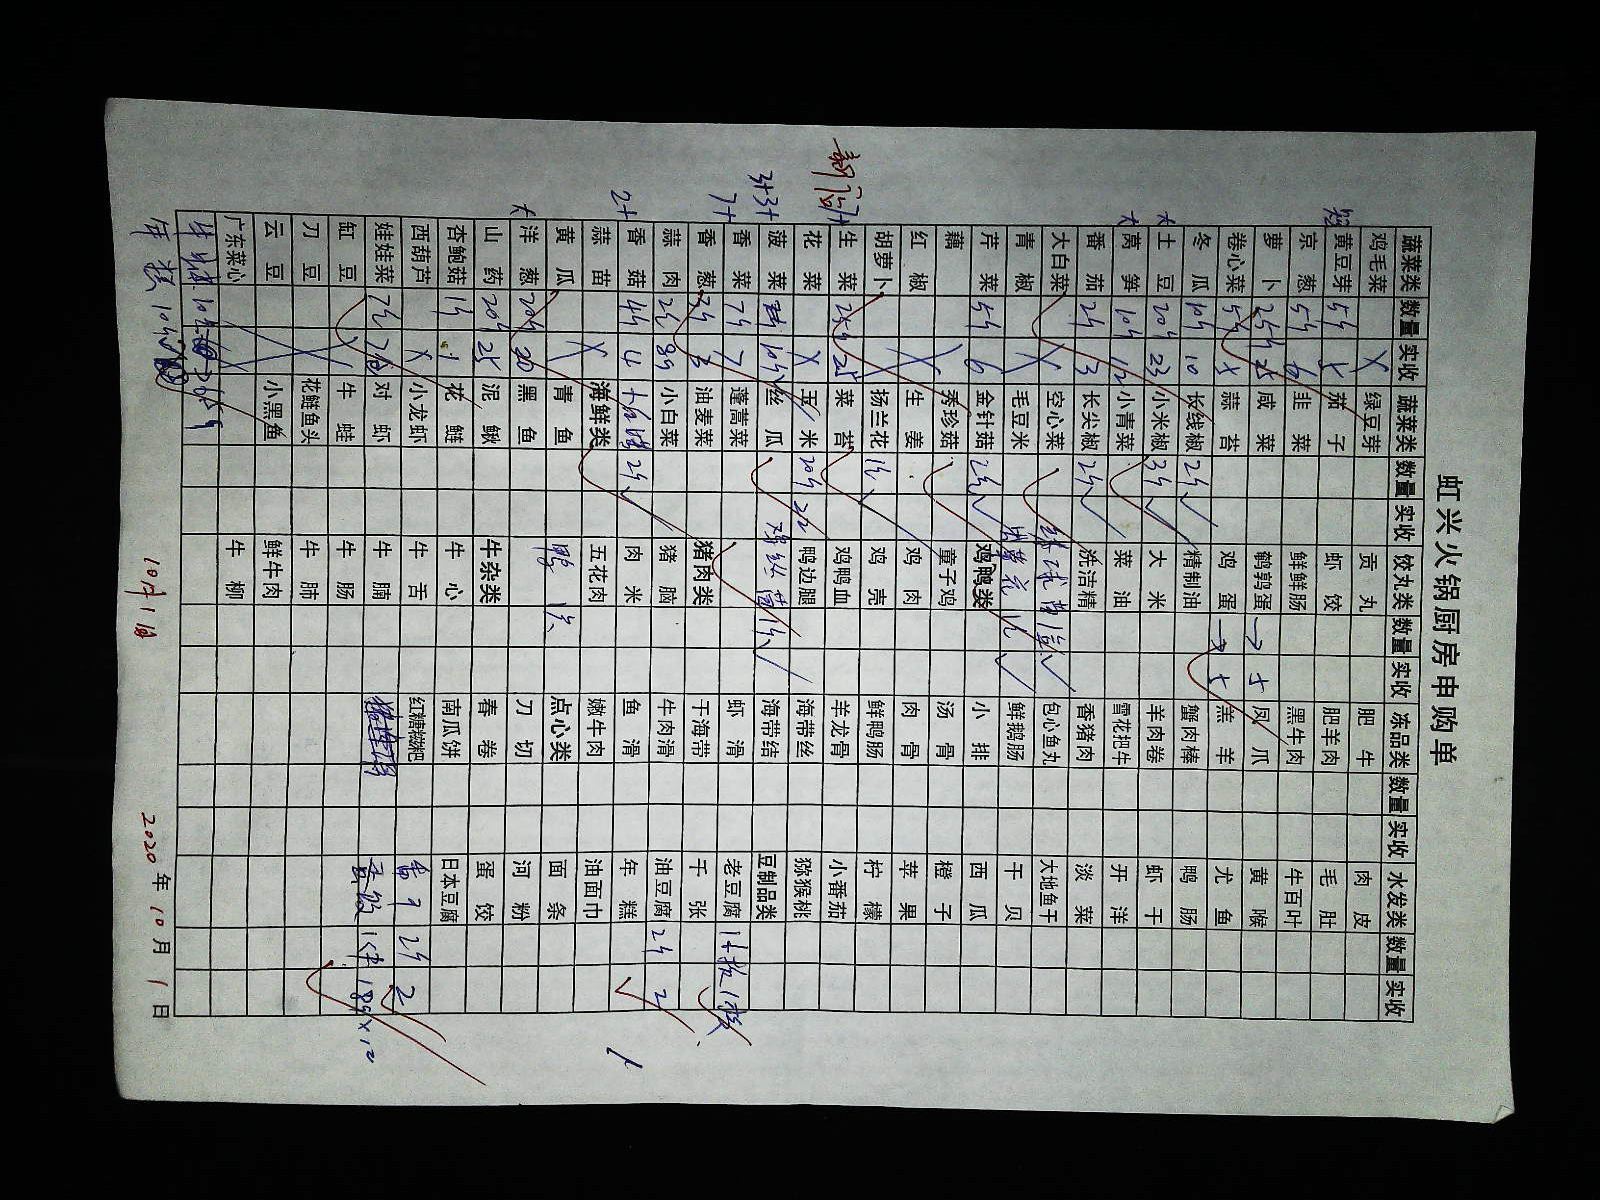 虹兴火锅厨房申购单
蔬菜类 数量 实收 蔬菜类 数量 实收 饺丸类 数量 实收 冻品类 数量 实收 水发类 数量 实收
鸡毛菜 X 绿豆芽 贡丸 肥牛 肉皮
黄豆芽 5斤 5 茄子 虾饺 肥羊肉 毛肚
京葱 5斤 6 韭菜 鲜鲜肠 黑牛肉 牛百叶
萝卜 25斤 25 咸菜 鹌鹑蛋 凤爪 黄喉
卷心菜 5斤 蒜苔 鸡蛋 羔羊 尤鱼
冬瓜 10斤 10 长线椒 2斤 精制油 蟹肉棒 鸭肠
大 土豆 20斤 23 小米椒 3斤 大米 羊肉卷 虾干
大 莴笋 10斤 12 小青菜 菜油 雪花把牛 开洋
番茄 2斤 3 长尖椒 2斤 洗洁精 香猪肉 淡菜
大白菜 X 空心菜 包心鱼丸 大地鱼干
青椒 X 毛豆米 鲜鹅肠 干贝
芹菜 5斤 6 金针菇 2斤 鸡鸭类 小排 西瓜
藕 秀珍菇 童子鸡 汤骨 橙子
红椒 X 生姜 鸡肉 肉骨 苹果
胡萝卜 扬兰花 鸡壳 鲜鸭肠 柠檬
生菜 25斤 25 菜苔 鸡鸭血 羊龙骨 小番茄
花菜 X 玉米 20斤 22 鸭边腿 海带丝 猕猴桃
3+3+ 菠菜 10斤 丝瓜 海带结 豆制品类
7+ 香菜 7斤 7 蓬蒿菜 虾滑 老豆腐 1板 1板
香葱 3斤 3 油麦菜 猪肉类 干海带 千张
蒜肉 2斤 小白菜 猪脑 牛肉滑 油豆腐 2斤 2
2+ 香菇 4斤 4 2斤 肉米 鱼滑 年糕
蒜苗 海鲜类 五花肉 嫩牛肉 油面巾
黄瓜 X 青鱼 点心类 面条
大 洋葱 20斤 20 黑鱼 刀切 河粉
山药 20斤 25 泥鳅 牛杂类 春卷 蛋饺
杏鲍菇 1斤 1 花鲢 牛心 南瓜饼 日本豆腐
西葫芦 X 小龙虾 牛舌 红糖糍粑 2斤 2
娃娃菜 对虾 牛腩 1件 18斤×12
缸豆 牛蛙 牛肠
刀豆 花鲢鱼头 牛肺
云豆 小黑鱼 鲜牛肉
广东菜心 牛柳
10斤
10斤
10月1日 2020年10月1日